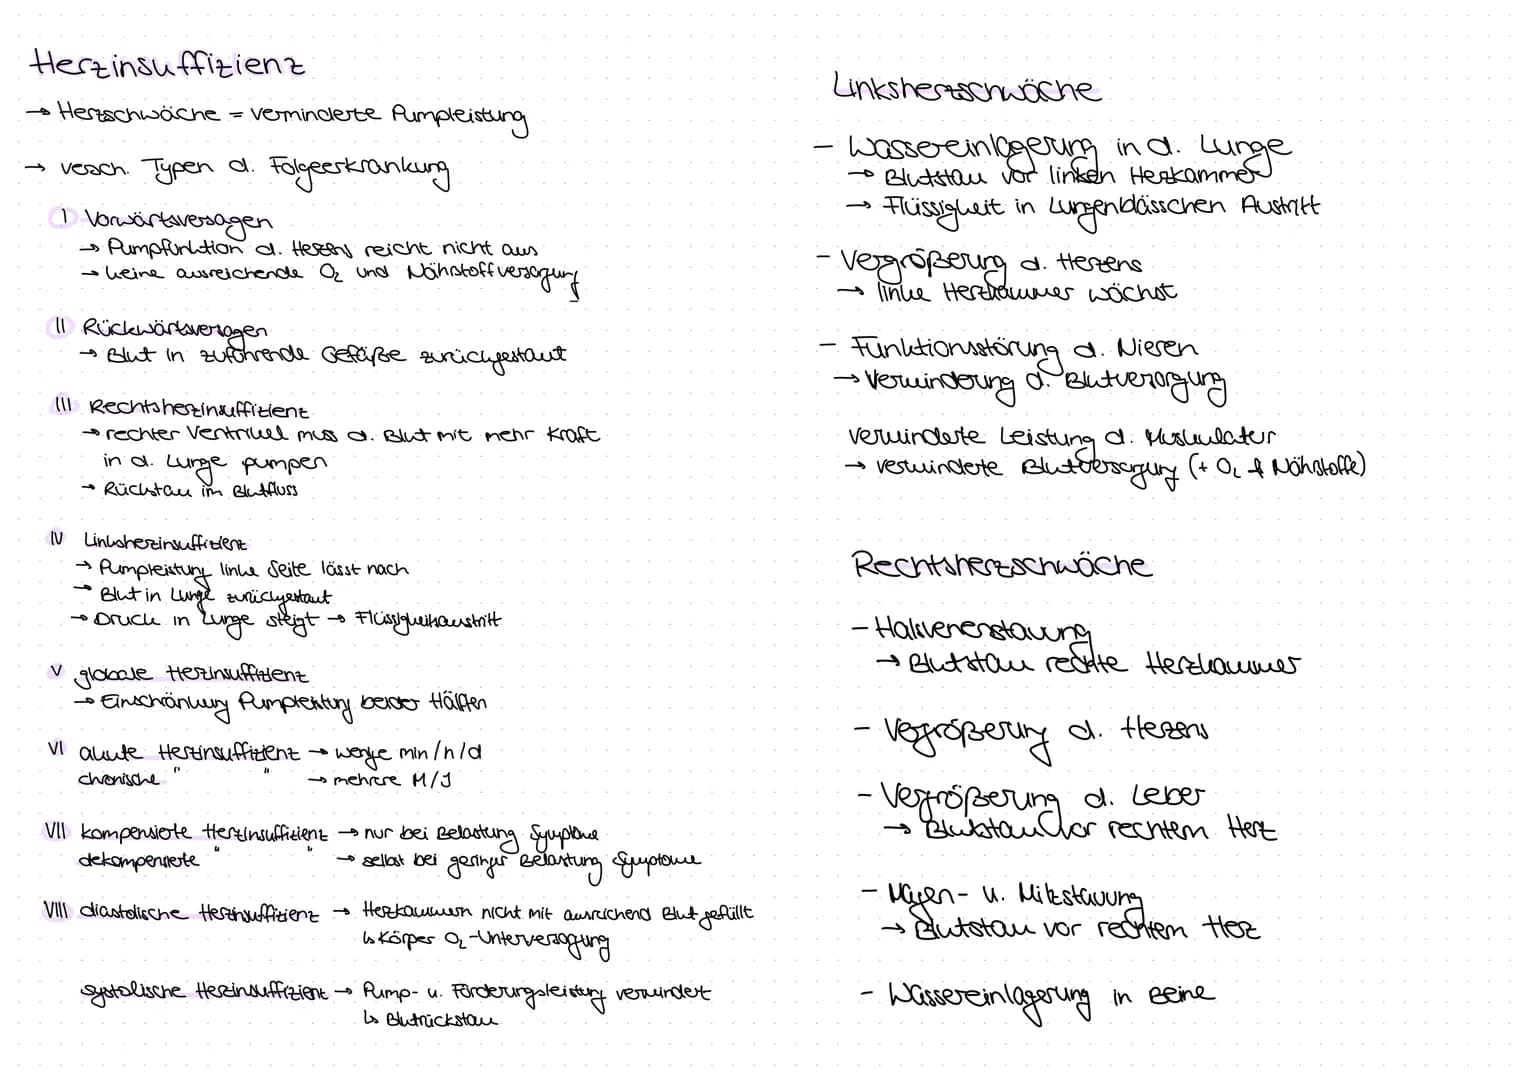 Herzinsuffizienz
→ Herzschwäche = verminderte Pumpleistung
→ versch. Typen d. Folgeerkrankung
I Vorwärtsversagen
→ Pumpfunktion d. Herzens reicht nicht aus
→ keine ausreichende O₂ und Nährstoffversorgung
II Rückwärtsversagen
→ Blut in zuführende Gefäße zurückgestaut
III Rechtsherzinsuffizienz
→ rechter Ventrikel muss d. Blut mit mehr Kraft
in d. Lunge pumpen
→ Rückstau im Blutfluss
IV Linksherzinsuffizienz
→ Pumpleistung linke Seite lässt nach
→ Blut in Lunge zurückgestaut
→ Druck in Lunge steigt → Flüssigkeitsaustritt
V globale Herzinsuffizienz
→ Einschränkung Pumpleistung beider Hälften
VI akute Herzinsuffizienz → wenige min/h/d
chronische " " → mehrere M/J
VII kompensierte Herzinsuffizienz → nur bei Belastung Symptome
dekompensierte " " → selbst bei geringer Belastung Symptome
VIII diastolische Herzinsuffizienz → Herzkammern nicht mit ausreichend Blut gefüllt
↳ Körper O₂-Unterversorgung
systolische Herzinsuffizienz → Pump- u. Förderungsleistung vermindert
↳ Blutrückstau
Linksherzschwäche
- Wassereinlagerung in d. Lunge
→ Blutstau vor linken Herzkammer
→ Flüssigkeit in Lungenbläschen Austritt
- Vergrößerung d. Herzens
→ linke Herzkammer wächst
- Funktionsstörung d. Nieren
→ Verminderung d. Blutversorgung
verminderte Leistung d. Muskulatur
→ verminderte Blutversorgung (+ O₂ & Nährstoffe)
Rechtsherzschwäche
- Halsvenenstauung
→ Blutstau rechte Herzkammer
- Vergrößerung d. Herzens
- Vergrößerung d. Leber
→ Blutstau vor rechtem Herz
- Magen- u. Milzstauung
→ Blutstau vor rechtem Herz
- Wassereinlagerung in Beine